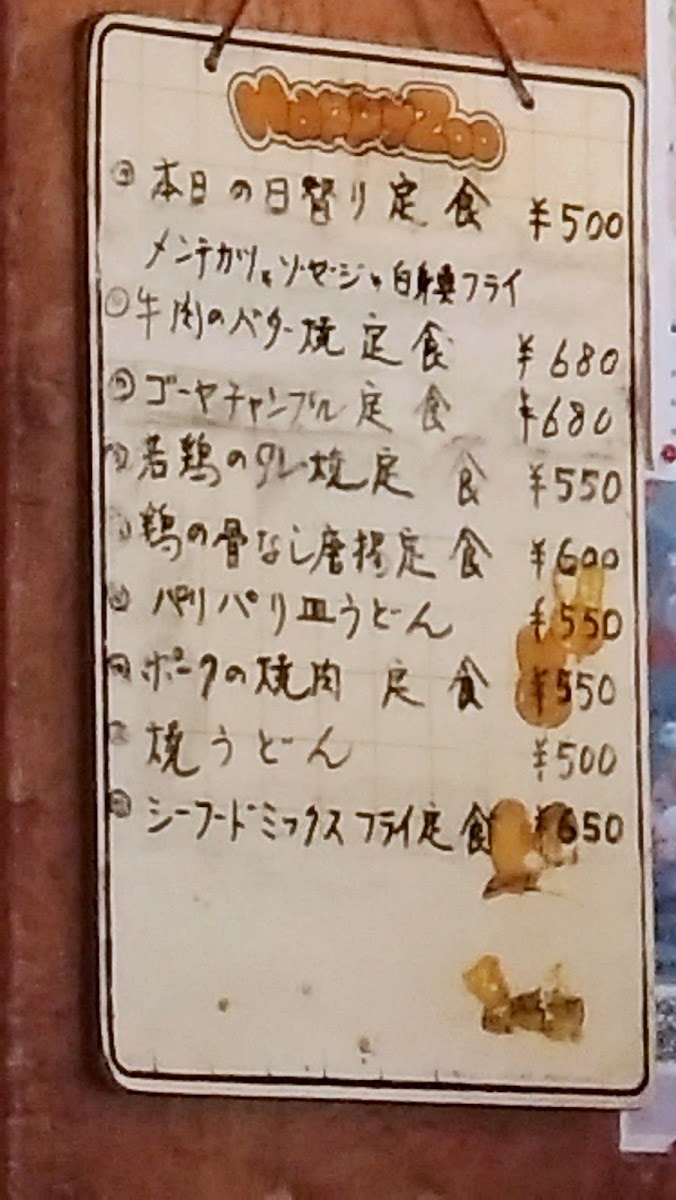 HappyZoo
本日の日替り定食 ¥500
メンチカツ、ソーセージ、白身魚フライ
牛肉のバター焼定食 ¥680
ゴーヤチャンプル定食 ¥680
若鶏のタレ焼定食 ¥550
鶏の骨なし唐揚定食 ¥600
パリパリ皿うどん ¥550
ポークの焼肉定食 ¥550
焼うどん ¥500
シーフードミックスフライ定食 ¥650